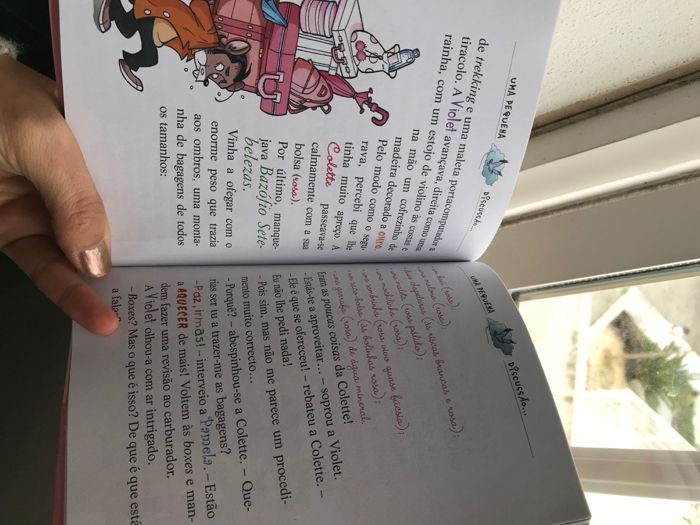 UMA PEQUENA DISCUSSÃO...
de trekking e uma maleta portacomputador a
tiracolo. A Violet avançava, direita como uma
rainha, com um estojo de violino às costas e
na mão um cofrezinho de
madeira decorado a ouro.
Pelo modo como o segu-
rava, percebi que lhe
tinha muito apreço. A
Colette passeava-se
calmamente com a sua
bolsa (rosa).
Por último, manque-
java Bazófio Sete-
belezas.
Vinha a ofegar com o
enorme peso que trazia
aos ombros, uma monta-
nha de bagagens de todos
os tamanhos:
UMA PEQUENA DISCUSSÃO...
baú (rosa);
(rosa);
(às riscas brancas e rosa);
(rosa pálido);
(rosa);
(rosa vivo quase fúcsia);
(às bolinhas rosa);
(rosa) de água mineral.
Eram as poucas coisas da Colette!
– Estás-te a aproveitar... – soprou a Violet.
– Ele é que se ofereceu! – rebateu a Colette. –
Eu não lhe pedi nada!
– Pois sim, mas não me parece um procedi-
mento muito correcto...
– Porquê? – abespinhou-se a Colette. – Que-
rias ser tu a trazer-me as bagagens?
– Paz, irmãs! – interveio a Pamela. – Estão
a AQUECER de mais! Voltem às boxes e man-
dem fazer uma revisão ao carburador.
A Violet olhou-a com ar intrigado.
– Boxes? Mas o que é isso? De que é que está
a